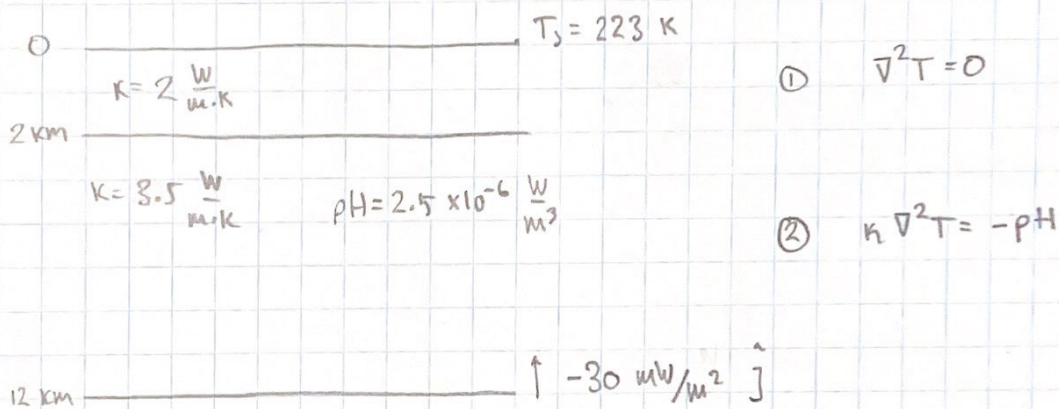 0
T_s = 223 K
K = 2 W/m·K
① ∇²T = 0
2 km
K = 3.5 W/m·K
ρH = 2.5 × 10⁻⁶ W/m³
② K ∇²T = -ρH
12 km
↑ -30 mW/m² ĵ